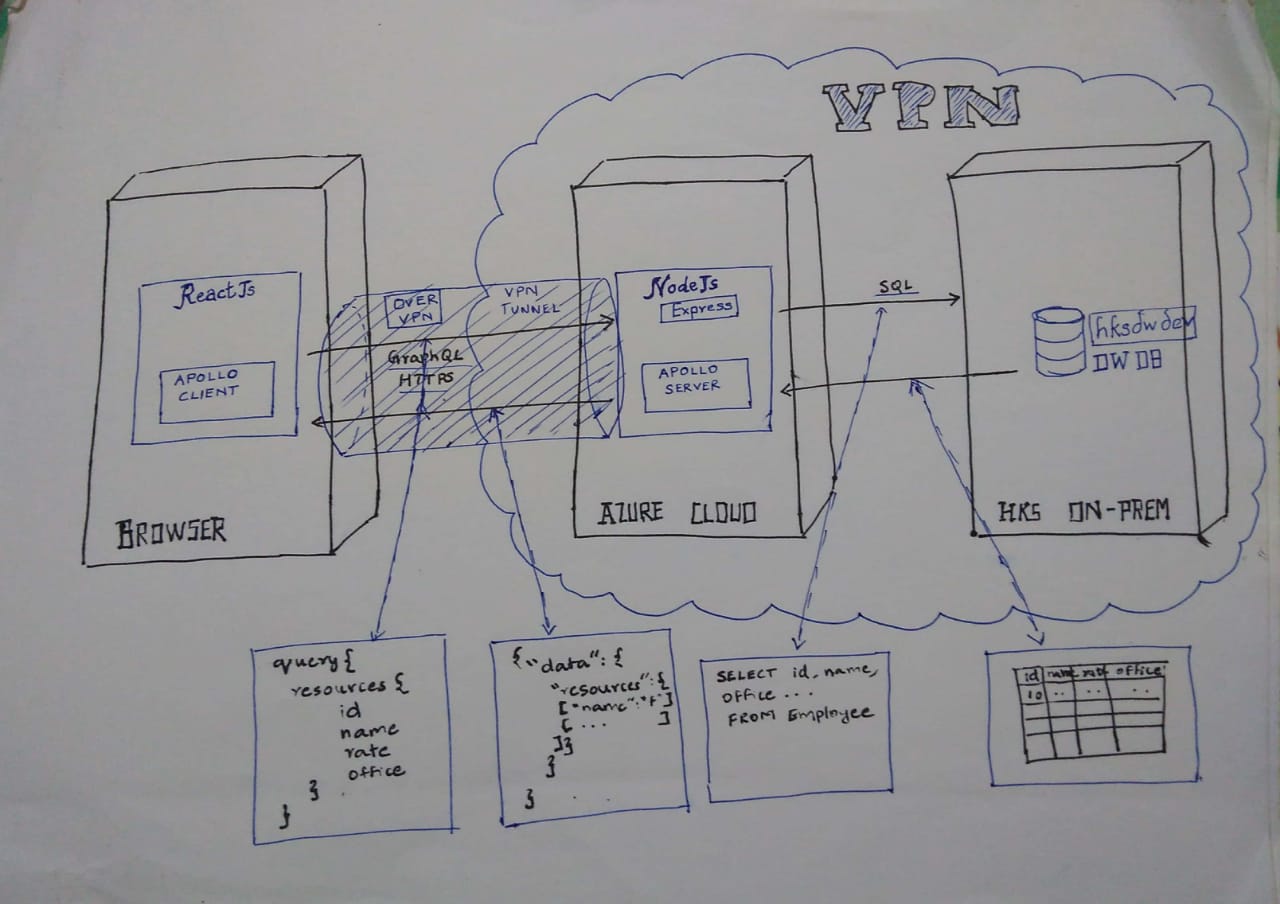 VPN
ReactJs
APOLLO
CLIENT
BROWSER
OVER
VPN
VPN
TUNNEL
GraphQL
HTTPS
NodeJs
Express
APOLLO
SERVER
AZURE CLOUD
SQL
hksdwdev
DW DB
HKS ON-PREM
query {
resources {
id
name
rate
office
}
}
{ "data": {
"resources": {
["name":
[ ... ]
]}
}
}
SELECT id, name,
office ...
FROM Employee
id name rate office
10 .. .. ..